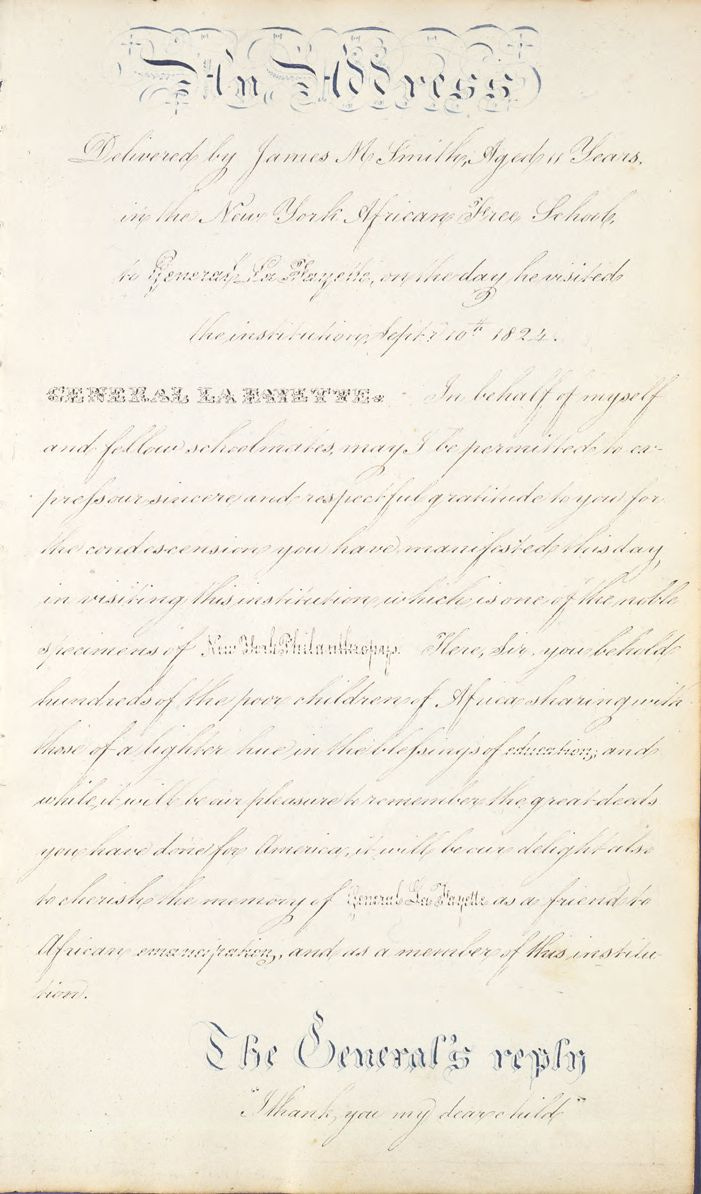 An Address
Delivered by James M. Smith, Aged 11 Years.
in the New York African Free School,
to General La Fayette, on the day he visited
the institution, Sept.r 10th 1824.
GENERAL LA FAYETTE. In behalf of myself
and fellow schoolmates, may I be permitted to ex-
press our sincere and respectful gratitude to you for
the condescension you have manifested this day,
in visiting this institution, which is one of the noble
specimens of New York Philanthropy. Here, Sir, you behold
hundreds of the poor children of Africa sharing with
those of a lighter hue in the blessings of education; and
while it will be our pleasure to remember the great deeds
you have done for America, it will be our delight also
to cherish the memory of General La Fayette as a friend to
African emancipation, and as a member of this institu-
tion.
The General's reply
"I thank you my dear child"